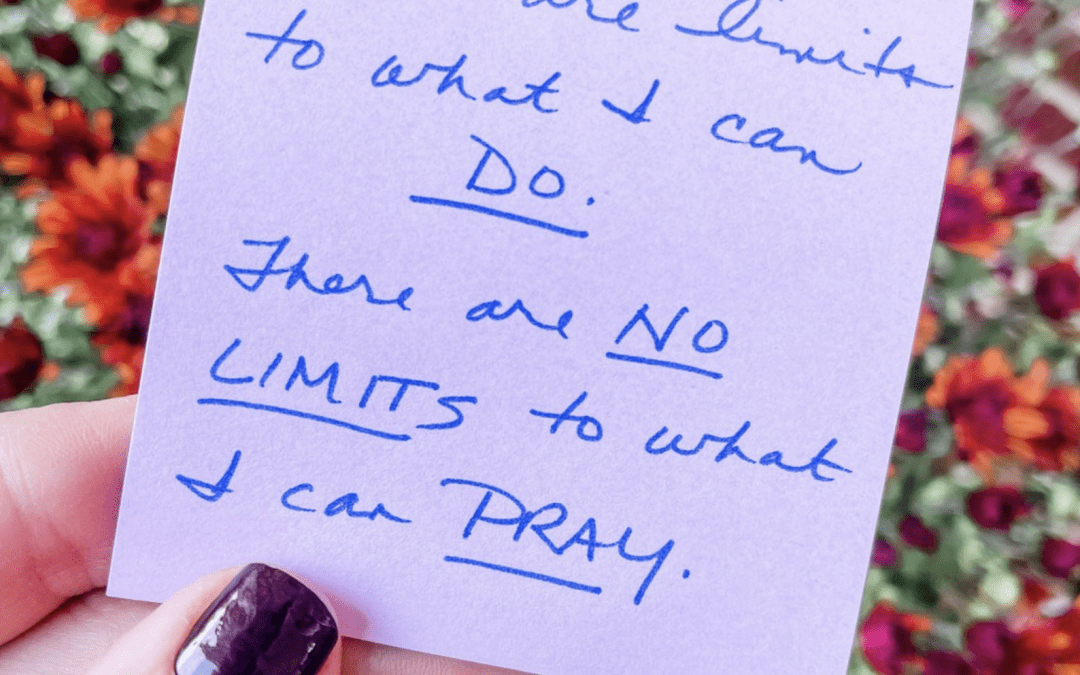 are limits
to what I can
DO.
There are NO
LIMITS to what
I can PRAY.